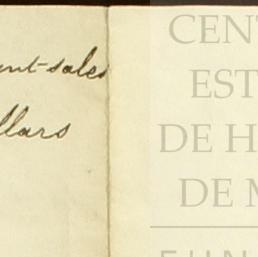 unt-sales
llars
CEN
EST
DE H
DE M
FUN